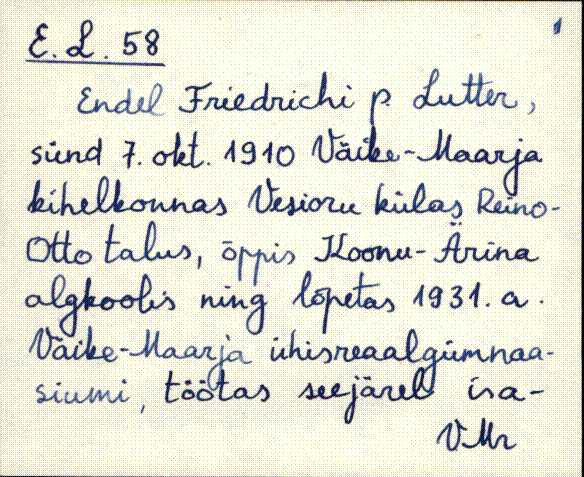 1
E. L. 58
Endel Friedrichi p. Lutter,
sünd 7. okt. 1910 Väike-Maarja
kihelkonnas Vesioru külas Reino-
Otto talus, õppis Koonu-Ärina
algkoolis ning lõpetas 1931. a.
Väike-Maarja ühisreaalgümnaa-
siumi, töötas seejärel isa-
VMr